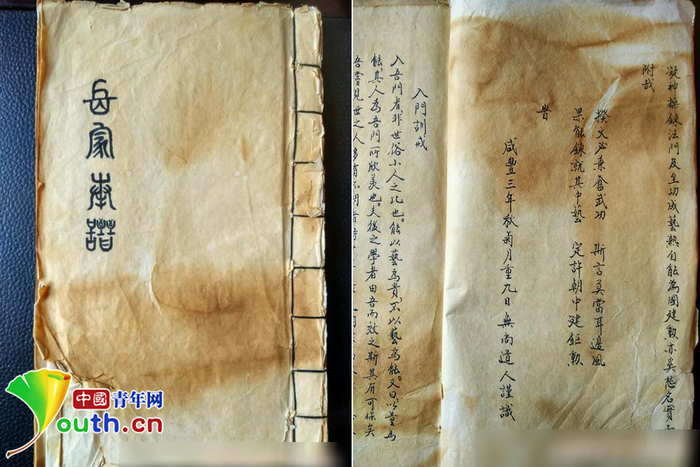 岳家拳譜
凝神操鍊法門及至功成藝熟自能為國建勲亦奚愁名實
附哉
揆文必兼奮武功 斯言莫當耳邊風
果能鍊就其中藝 定許朝中建鉅勲
旹
咸豐三年秋菊月重九日無尚道人謹識
入門訓戒
入吾門者,非世俗小人之比也。能以藝為貴,不以藝為能。又曰必量為
能,其人為吾門所欣羡也。夫後之學者由吾而效之斯其有可保矣
吾嘗見世之人多有不明者
中國青年网
Youth.cn